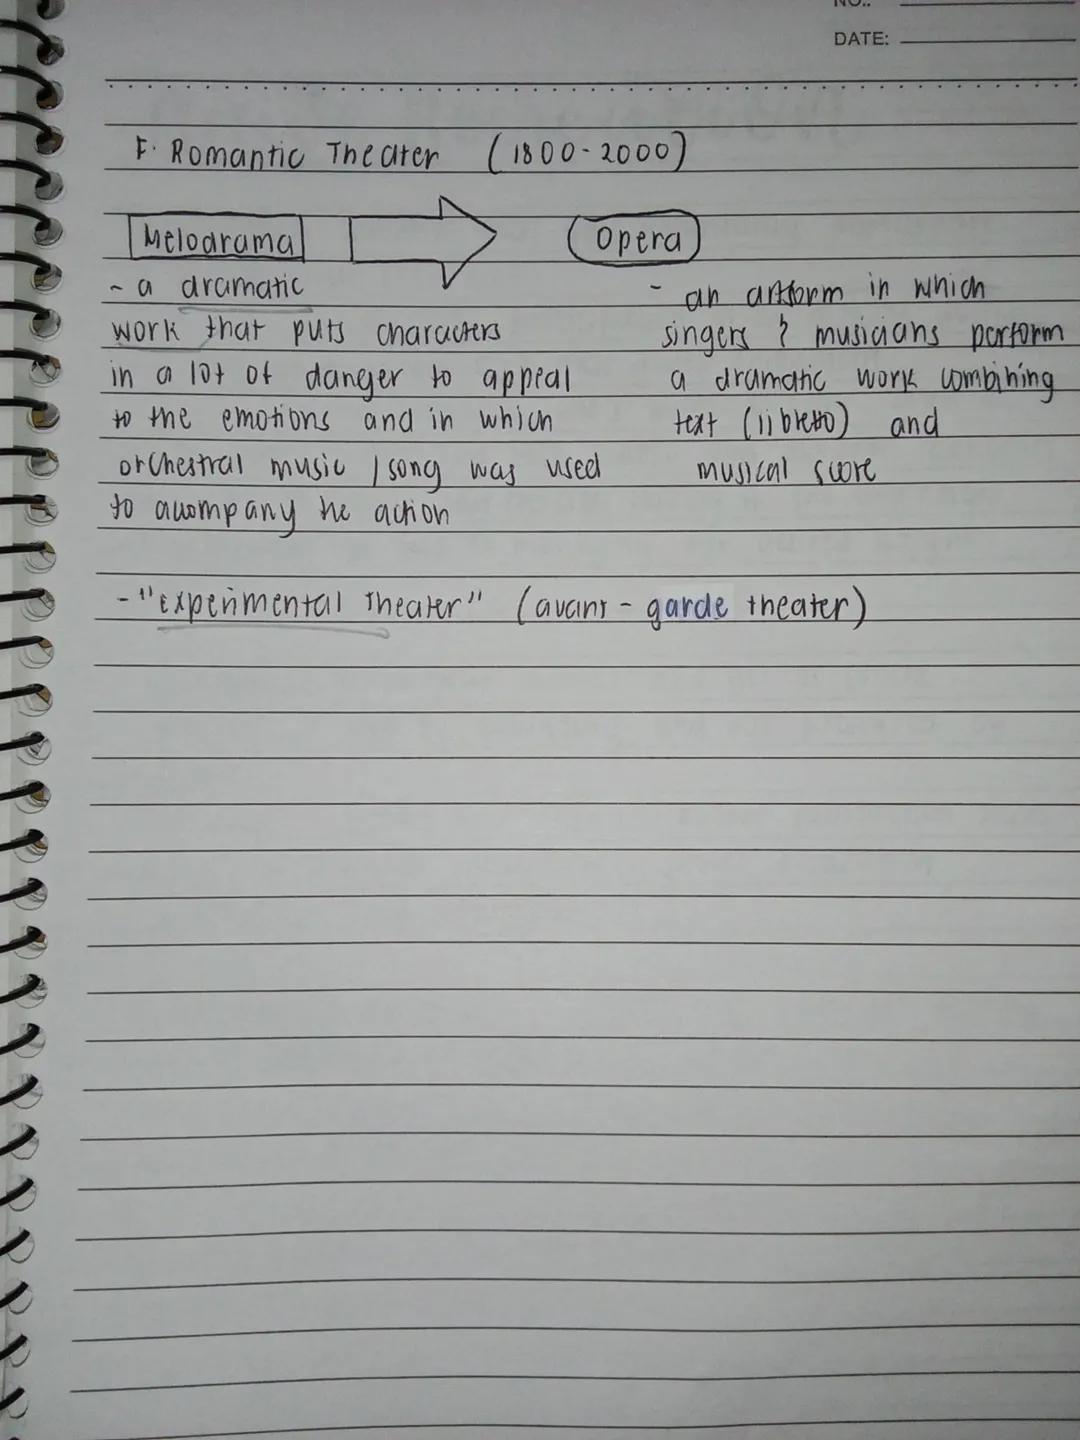 NO.:
DATE:
F. Romantic Theater (1800-2000)
Melodrama
Opera
- a dramatic
work that puts characters
in a lot of danger to appeal
to the emotions and in which
orchestral music / song was used
to accompany the action
- an artform in which
singers & musicians perform
a dramatic work combining
text (libretto) and
musical score
- "Experimental Theater" (avant-garde theater)